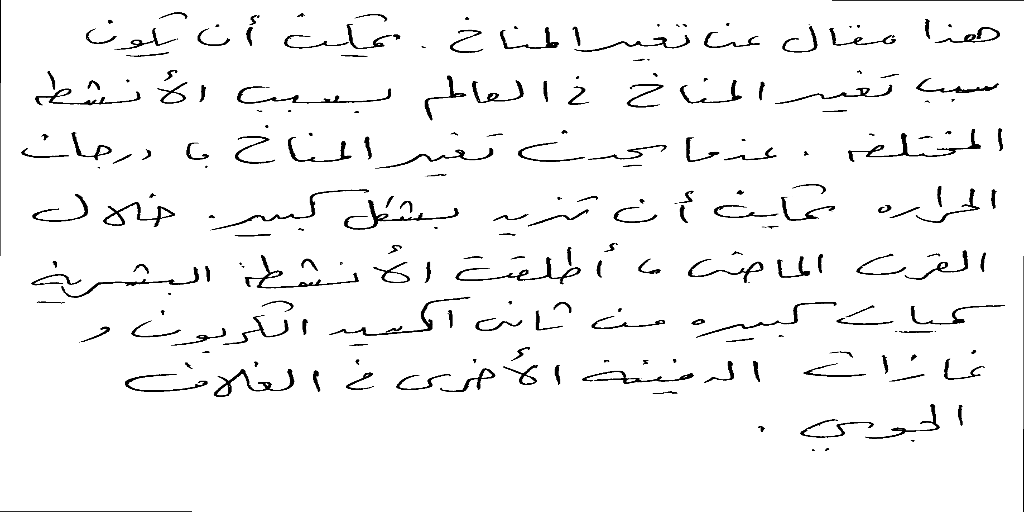 هذا مقال عن تغير المناخ . يمكن أن يكون
سبب تغير المناخ في العالم بسبب الأنشطه
المختلفه . عندما يحدث تغير المناخ ، درجات
الحراره يمكن أن تزيد بشكل كبير . خلال
القرن الماضى ، أطلقت الأنشطة البشرية
كميات كبيره من ثانى اكسيد الكربون و
غازات الدفيئه الأخرى في الغلاف
الجوي .